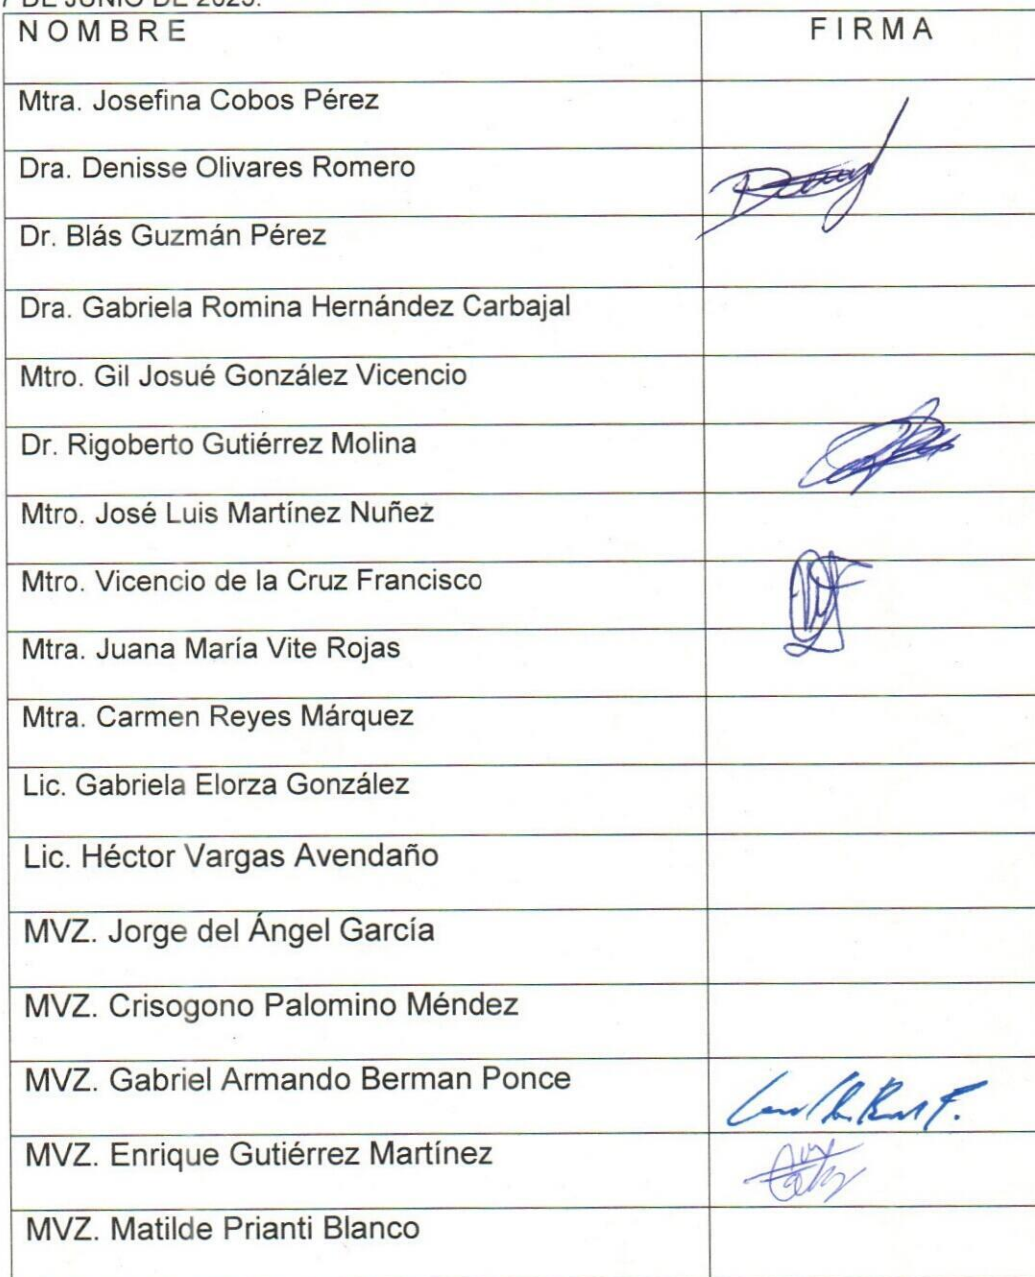 7 DE JUNIO DE 2023.
N O M B R E F I R M A
Mtra. Josefina Cobos Pérez
Dra. Denisse Olivares Romero
Dr. Blás Guzmán Pérez
Dra. Gabriela Romina Hernández Carbajal
Mtro. Gil Josué González Vicencio
Dr. Rigoberto Gutiérrez Molina
Mtro. José Luis Martínez Nuñez
Mtro. Vicencio de la Cruz Francisco
Mtra. Juana María Vite Rojas
Mtra. Carmen Reyes Márquez
Lic. Gabriela Elorza González
Lic. Héctor Vargas Avendaño
MVZ. Jorge del Ángel García
MVZ. Crisogono Palomino Méndez
MVZ. Gabriel Armando Berman Ponce
MVZ. Enrique Gutiérrez Martínez
MVZ. Matilde Prianti Blanco